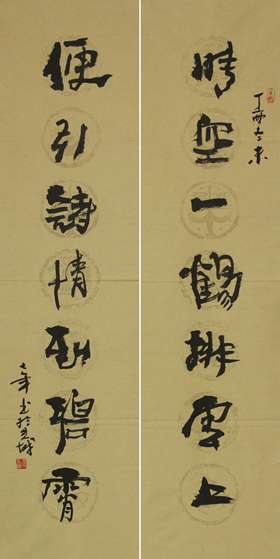 丁酉
晴空一鶴排雲上
便引詩情到碧霄